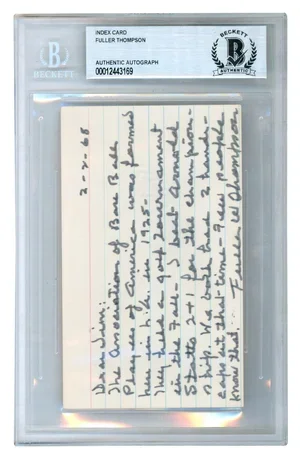 BECKETT
INDEX CARD
FULLER THOMPSON
AUTHENTIC AUTOGRAPH
00012443169
BECKETT
AUTHENTIC
2-2-68
Dear Jim:
The Association of Base Ball
Players of America was formed
here in in 1925-
They held a golf tournament
in the Fall- I beat Arnold
Statz 2+1 for the champion-
ship. We both had 2 handi-
caps at that time- Few people
know that. Fuller W Thompson